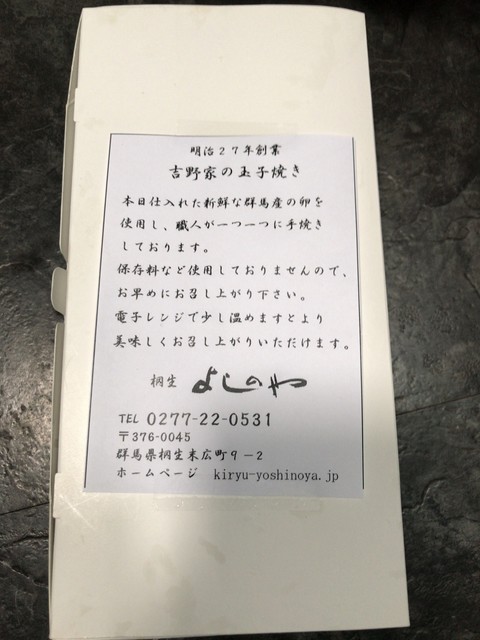 明治２７年創業
吉野家の玉子焼き
本日仕入れた新鮮な群馬産の卵を
使用し、職人が一つ一つに手焼き
しております。
保存料など使用しておりませんので、
お早めにお召し上がり下さい。
電子レンジで少し温めますとより
美味しくお召し上がりいただけます。
桐生 よしのや
TEL 0277-22-0531
〒376-0045
群馬県桐生末広町９－２
ホームページ kiryu-yoshinoya.jp